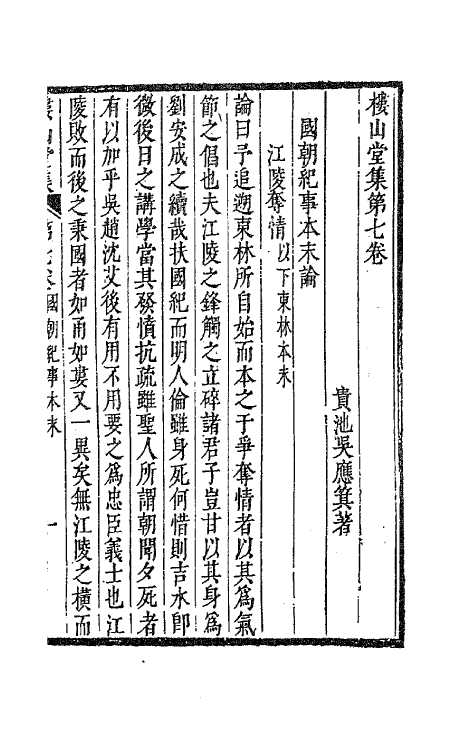 樓山堂集第七卷
貴池吳應箕著
國朝紀事本末論
江陵奪情以下東林本末
論曰予追遡東林所自始而本之于爭奪情者以其爲氣
節之倡也夫江陵之鋒觸之立碎諸君子豈甘以其身爲
劉安成之續哉扶國紀而明人倫雖身死何惜則吉水卽
微後日之講學當其發憤抗疏雖聖人所謂朝聞夕死者
有以加乎吳趙沈艾後有用不用要之爲忠臣義士也江
陵敗而後之秉國者如甬如婁又一異矣無江陵之橫而
樓山堂集 第七卷 國朝紀事本末 一